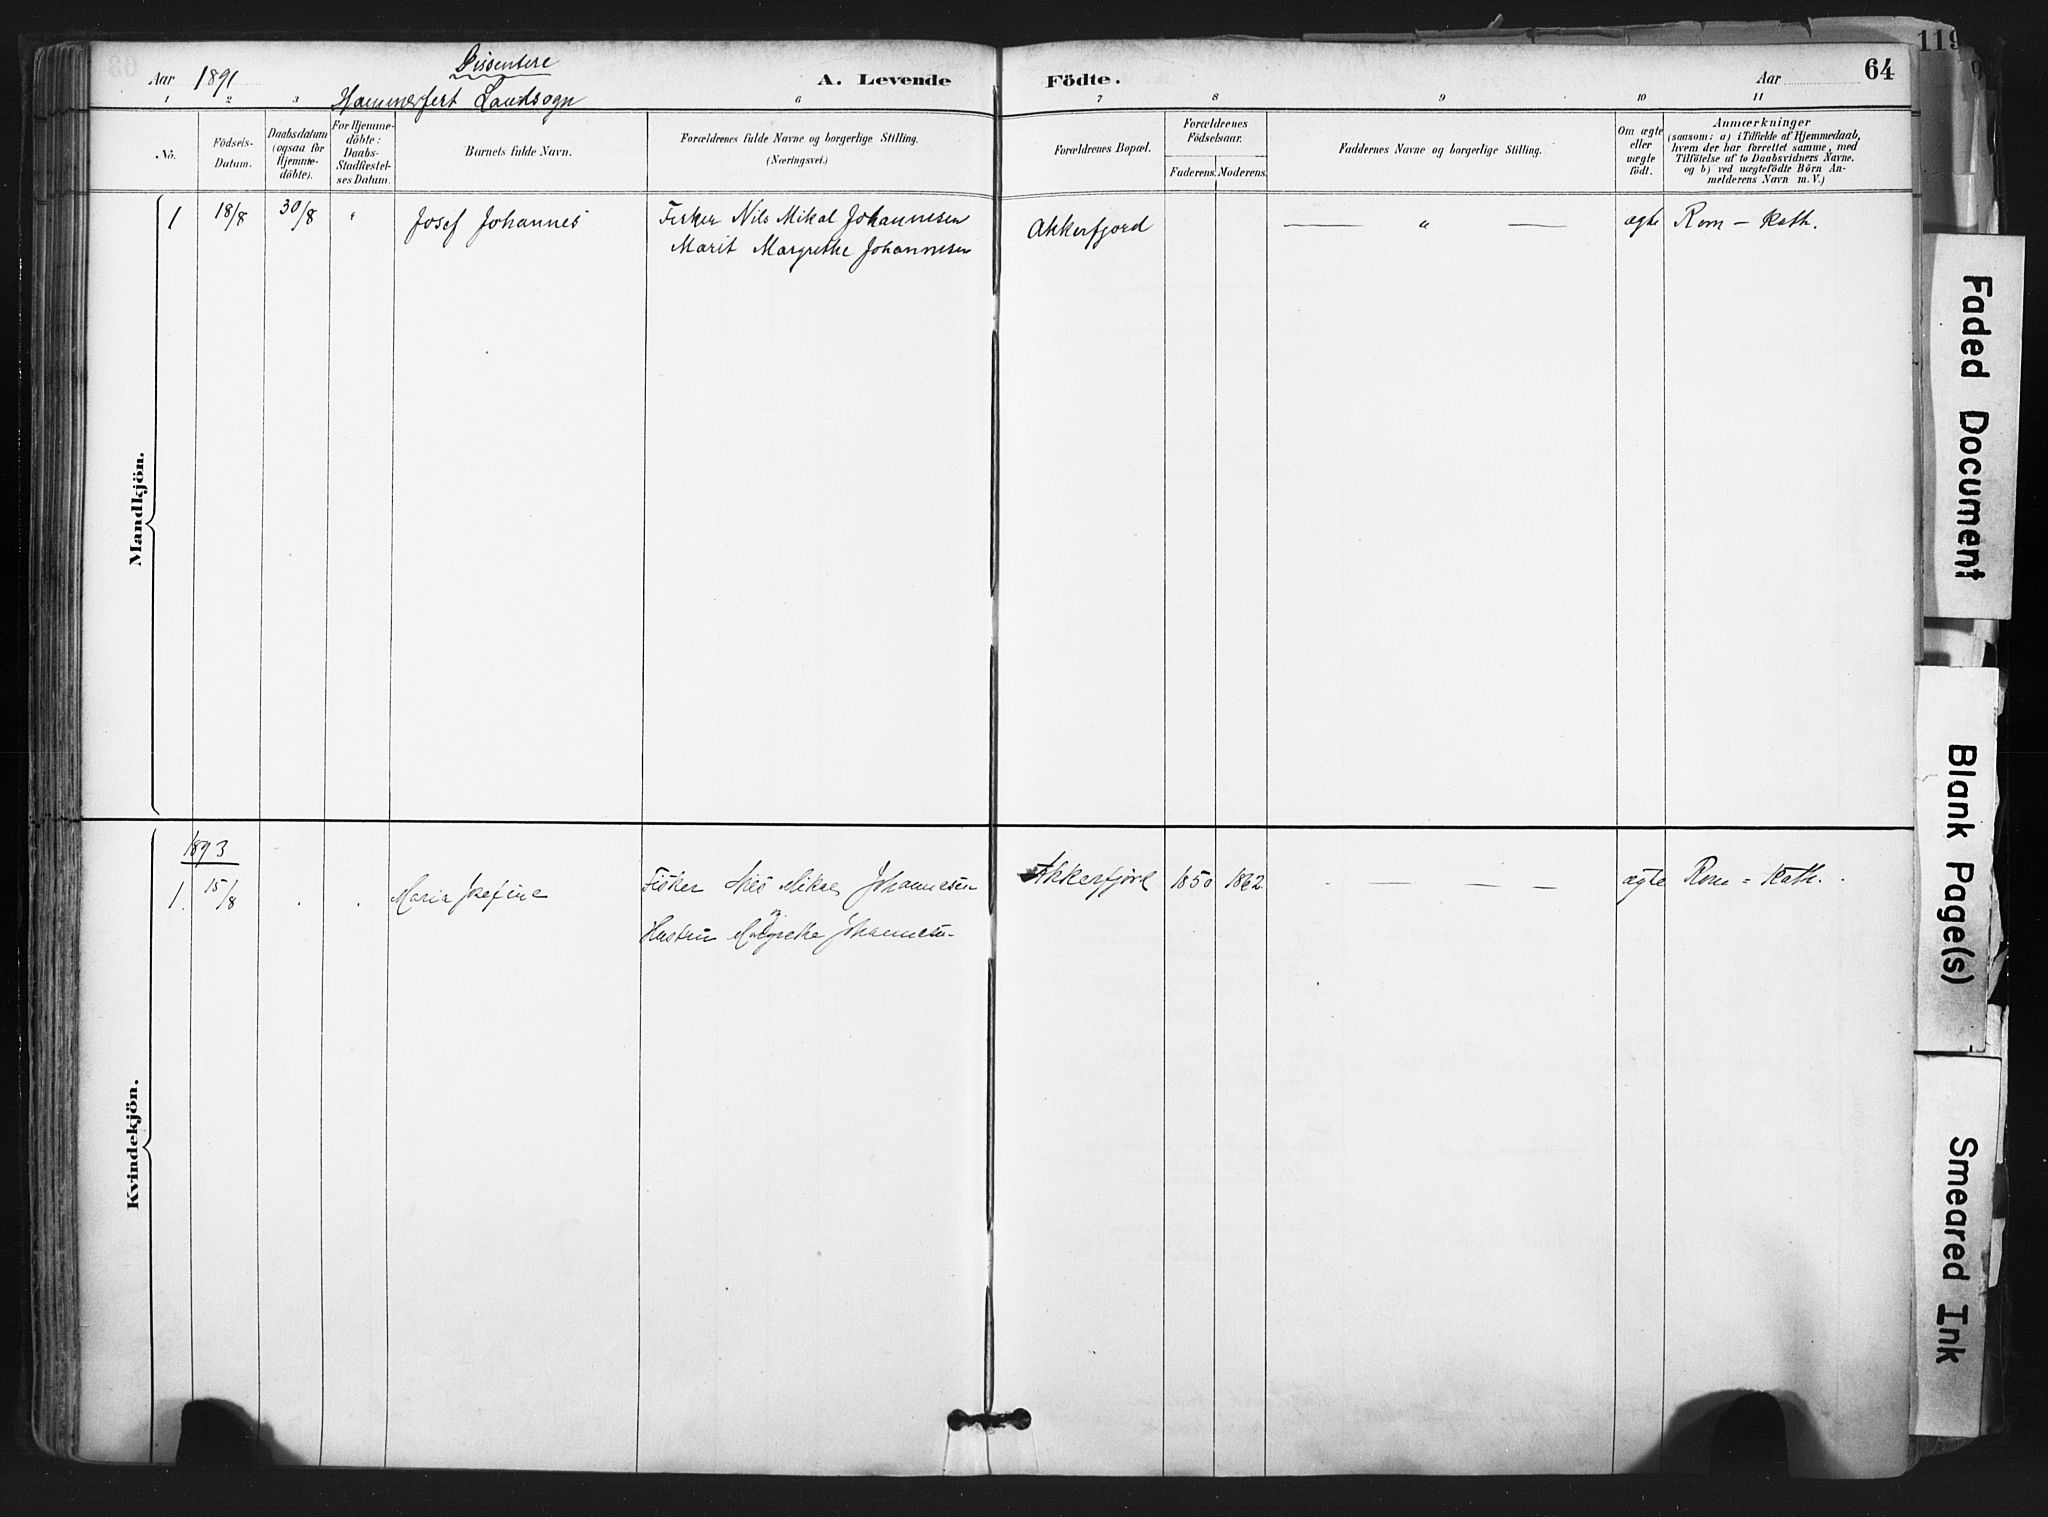 Aar 1891 Dissentere A. Levende Födte. Aar 64
Hammerfest Landsogn
119
1 2 3 6 7 8 9 10 11
No.
Födsels-
Datum.
Daabsdatum
(ogsaa for
Hjemme-
döbte).
For Hjemme-
döbte:
Daabs-
Stadfæstel-
ses Datum.
Barnets fulde Navn.
Forældrenes fulde Navne og borgerlige Stilling.
(Næringsvei.)
Forældrenes Bopæl.
Forældrenes
Födselsaar.
Faderens. Moderens.
Faddernes Navne og borgerlige Stilling.
Om ægte
eller
uægte
födt.
Anmærkninger
(saasom: a) i Tilfælde af Hjemmedaab,
hvem der har forrettet samme, med
Tilföielse af to Daabsvidners Navne.
og b) ved uægtefödte Börn An-
melderens Navn m. V.)
Mandkjön.
1 18/8 30/8 " Josef Johannes Fisker Nils Mikal Johannesen Akkerfjord — " — ægte Rom – Kath.
Marit Margrethe Johannesen
Kvindekjön.
1893
1. 15/8 Maria Josefine Fisker Nils Mikal Johannesen Akkerfjord 1850 1862. - — — — ægte Rom = Kath.
Hustru Margrethe Johannesen
Faded Document
Blank Page(s)
Smeared Ink